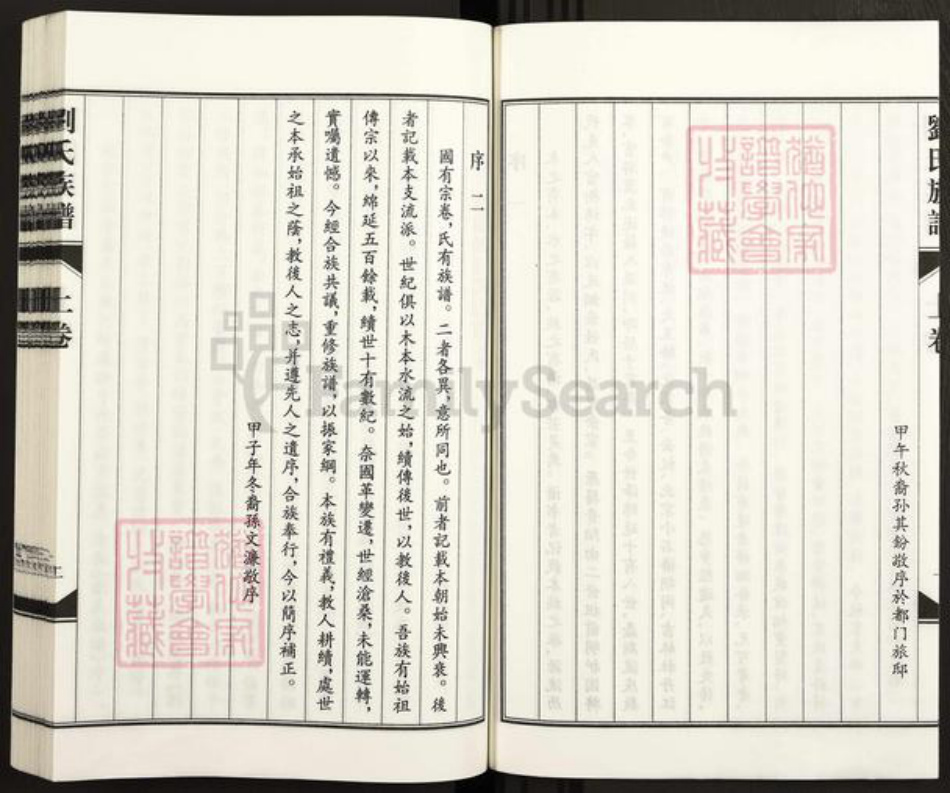 劉氏族譜
上卷
甲午秋裔孙其鈖敬序於都门旅邸
序二
國有宗卷，氏有族譜。二者各異，意所同也。前者記載本朝始末興衰。後
者記載本支流派。世紀俱以木本水流之始，續傳後世，以教後人。吾族有始祖
傳宗以來，綿延五百餘載，續世十有數紀。奈國革變遷，世經滄桑，未能運轉，
實囑遺憾。今經合族共議，重修族譜，以振家綱。本族有禮義，教人耕績，處世
之本承始祖之蔭，教後人之志，并遵先人之遺序，合族奉行，今以簡序補正。
甲子年冬裔孫文濂敬序
劉氏族譜
上卷
FamilySearch